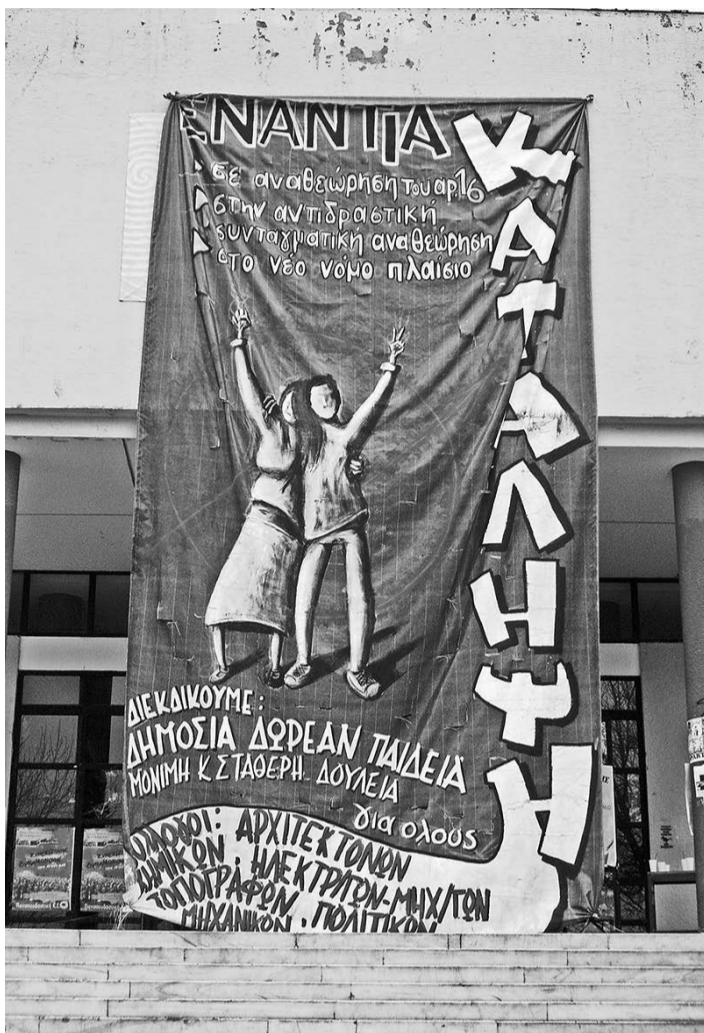 ΕΝΑΝΤΙΑ
σε αναθεώρηση του αρ16
στην αντιδραστική
συνταγματική αναθεώρηση
στο νέο νόμο πλαίσιο
ΚΑΤΑΛΗΨΗ
ΔΙΕΚΔΙΚΟΥΜΕ:
ΔΗΜΟΣΙΑ ΔΩΡΕΑΝ ΠΑΙΔΕΙΑ
ΜΟΝΙΜΗ Κ ΣΤΑΘΕΡΗ ΔΟΥΛΕΙΑ
για όλους
ΣΥΛΛΟΓΟΙ: ΑΡΧΙΤΕΚΤΟΝΩΝ
ΧΗΜΙΚΩΝ · ΗΛΕΚΤΡ/ΓΩΝ-ΜΗΧ/ΓΩΝ
ΤΟΠΟΓΡΑΦΩΝ
ΜΗΧΑΝΙΚΩΝ · ΠΟΛΙΤΙΚΩΝ